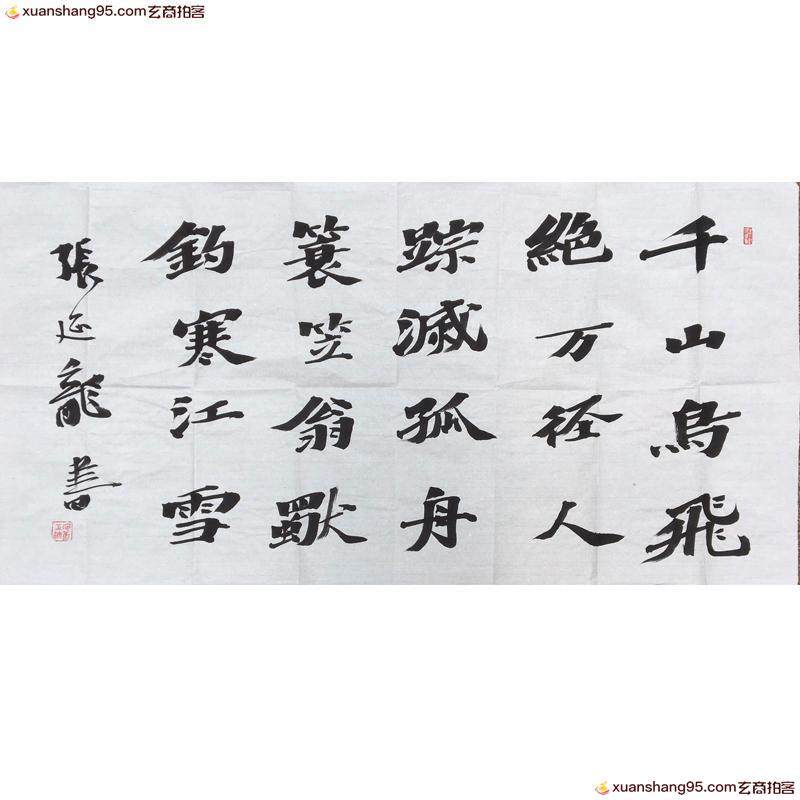 xuanshang95.com玄商拍客
千山鸟飛
絶万径人
踪滅孤舟
簑笠翁獸
釣寒江雪
張延龍書
xuanshang95.com玄商拍客